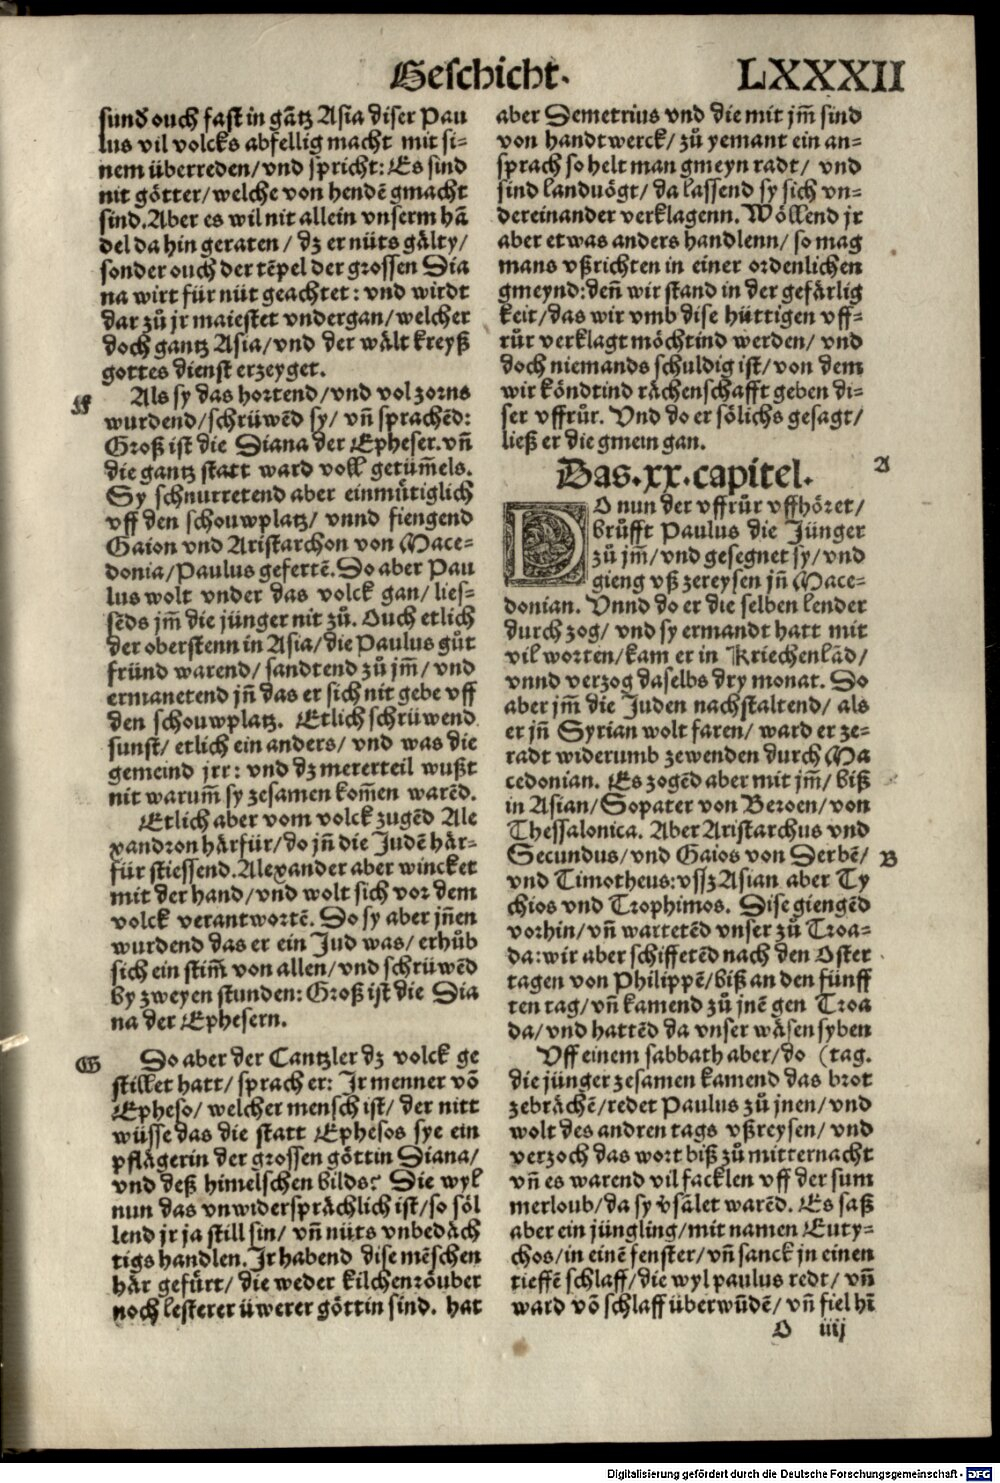 Geschicht.
LXXXII
sund ouch fast in gãtz Asia diser Pau
lus vil volcks abfellig macht mit si-
nem überreden/vnd spricht: Es sind
nit götter/welche von hendẽ gmacht
sind. Aber es wil nit allein vnserm hã
del da hin geraten/ dz er nüts gälty/
sonder ouch der tẽpel der grossen Dia
na wirt für nüt geachtet: vnd wirdt
dar zů jr maiestet vndergan/welcher
doch gantz Asia/vnd der wält kreyß
gottes dienst erzeyget.
F
Als sy das hortend/vnd vol zorns
wurdend/schrüwẽd sy/ vñ sprachẽd:
Groß ist die Diana der Epheser. vñ
die gantz statt ward voll getüm̃els.
Sy schnurretend aber einmütiglich
vff den schouwplatz/ vnnd fiengend
Gaion vnd Aristarchon von Mace-
donia/Paulus gefertẽ. Do aber Pau
lus wolt vnder das volck gan/ lies-
sẽds jm̃ die jünger nit zů. Ouch etlich
der oberstenn in Asia/die Paulus gůt
fründ warend/ sandtend zů jm̃/ vnd
ermanetend jñ das er sich nit gebe vff
den schouwplatz. Etlich schrüwend
sunst/ etlich ein anders/ vnd was die
gemeind jrr: vnd dz mererteil wußt
nit warum̃ sy zesamen kom̃en warẽd.
Etlich aber vom volck zugẽd Ale
xandron härfür/do jñ die Judẽ här-
für stiessend. Alexander aber wincket
mit der hand/vnd wolt sich vor dem
volck verantwortẽ. Do sy aber jñen
wurdend das er ein Jud was/ erhůb
sich ein stim̃ von allen/vnd schrüwẽd
by zweyen stunden: Groß ist die Dia
na der Ephesern.
G
Do aber der Cantzler dz volck ge
stillet hatt/ sprach er: Ir menner võ
Epheso/ welcher mensch ist/ der nitt
wüsse das die statt Ephesos sye ein
pflägerin der grossen göttin Diana/
vnd deß himelschen bilds? Die wyl
nun das vnwidersprächlich ist/so söl
lend jr ja still sin/ vñ nüts vnbedäch
tigs handlen. Ir habend dise mẽschen
här gefürt/ die weder kilchenröuber
noch lesterer üwerer göttin sind. hat
aber Demetrius vnd die mit jm̃ sind
von handtwerck/ zů yemant ein an-
sprach so helt man gmeyn radt/ vnd
sind landuögt/ da lassend sy sich vn-
dereinander verklagenn. Wöllend jr
aber etwas anders handlenn/ so mag
mans vßrichten in einer ordenlichen
gmeynd: deñ wir stand in der gefärlig
keit/das wir vmb dise hüttigen vff-
růr verklagt möchtind werden/ vnd
doch niemands schuldig ist/ von dem
wir köndtind rächenschafft geben di-
ser vffrůr. Vnd do er sölichs gesagt/
ließ er die gmein gan.
Das.xx.capitel.
A
DO nun der vffrůr vffhöret/
brůfft Paulus die Jünger
zů jm̃/ vnd gesegnet sy/ vnd
gieng vß zereysen jñ Mace-
donian. Vnnd do er die selben lender
durch zog/ vnd sy ermandt hatt mit
vil worten/kam er in Kriechenlãd/
vnnd verzog daselbs dry monat. Do
aber jm̃ die Juden nachstaltend/ als
er jñ Syrian wolt faren/ ward er ze-
radt widerumb zewenden durch Ma
cedonian. Es zogẽd aber mit jm̃/ biß
in Asian/ Sopater von Beroen/ von
Thessalonica. Aber Aristarchus vnd
Secundus/ vnd Gaios von Derbẽ/
B
vnd Timotheus: vssz Asian aber Ty
chios vnd Trophimos. Dise giengẽd
vorhin/ vñ wartetẽd vnser zů Troa-
da: wir aber schiffetẽd nach den Oster
tagen von Philippẽ/biß an den fünff
ten tag/ vñ kamend zů jnẽ gen Troa
da/ vnd hattẽd da vnser wäsen syben
Vff einem sabbath aber/ do (tag.
die jünger zesamen kamend das brot
zebrächẽ/redet Paulus zů jnen/ vnd
wolt des andren tags vßreysen/ vnd
verzoch das wort biß zů mitternacht
vñ es warend vil facklen vff der sum
merloub/ da sy v̊sälet warẽd. Es saß
aber ein jüngling/mit namen Euty-
chos/in einẽ fenster/ vñ sanck jn einen
tieffẽ schlaff/die wyl paulus redt/ vñ
ward võ schlaff überwũdẽ/ vñ fiel hĩ
O iiij
Digitalisierung gefördert durch die Deutsche Forschungsgemeinschaft - DFG